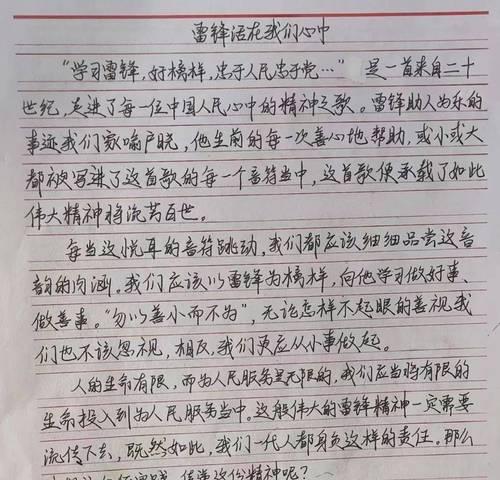 雷锋活在我们心中
“学习雷锋，好榜样，忠于人民忠于党…” 是一首来自二十
世纪，走进了每一位中国人民心中的精神之歌。雷锋助人为乐的
事迹我们家喻户晓，他生前的每一次善心地帮助，或小或大
都被写进了这首歌的每一个音符当中，这首歌便承载了如此
伟大精神将流芳百世。
每当这悦耳的音符跳动，我们都应该细细品尝这音
韵的内涵。我们应该以雷锋为榜样，向他学习做好事、
做善事。“勿以善小而不为”，无论怎样不起眼的善视我
们也不该忽视，相反，我们更应从小事做起。
人的生命有限，而为人民服务是无限的，我们应当将有限的
生命投入到为人民服务当中。这般伟大的雷锋精神一定需要
流传下去，既然如此，我们一代人都身负这样的责任。那么
传递这份精神呢？